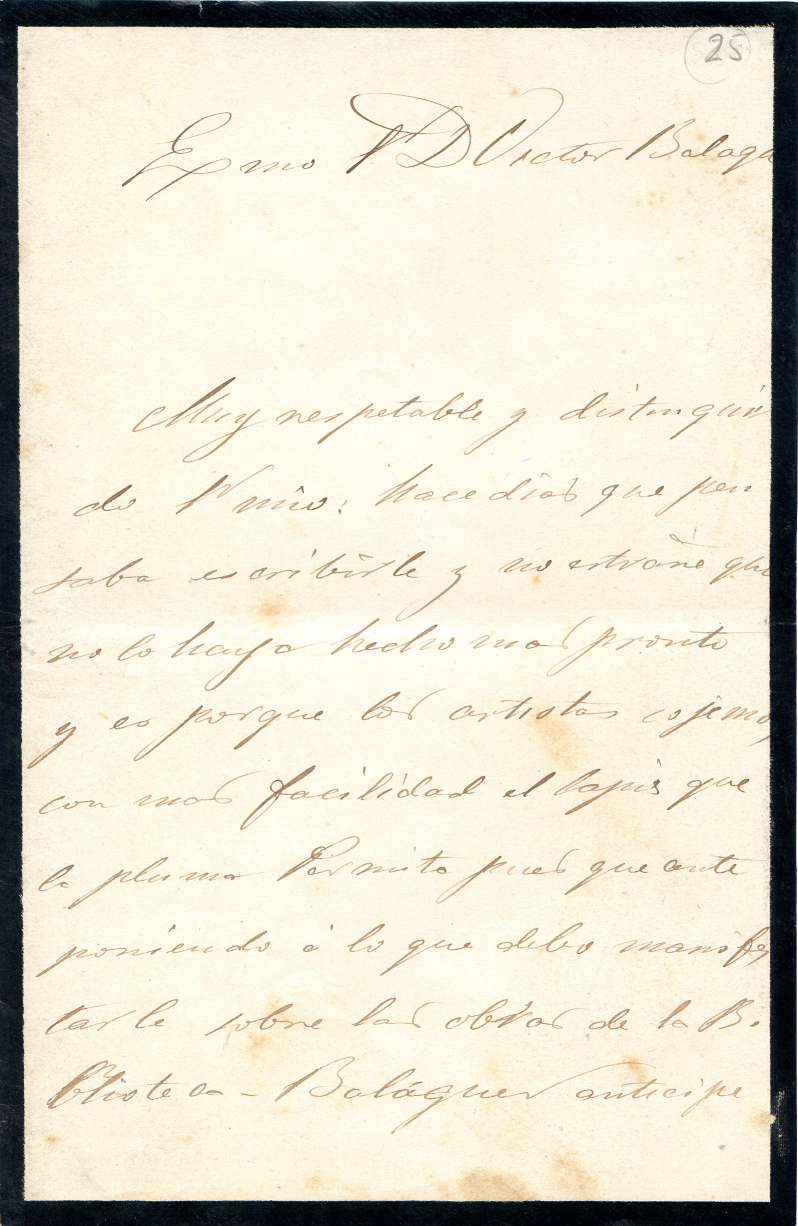 25
Exmo Sr D Victor Balagu
Muy respetable y distingui
do Sr mio: hace dias que pen
saba escribirle y no estrañe que
no lo haya hecho mas pronto
y es porque los artistas cojemos
con mas facilidad el lapis que
la pluma Permita pues que ante
poniendo á lo que debo manifes
tarle sobre las obras de la Bi
blioteca-Baláguer anticipe